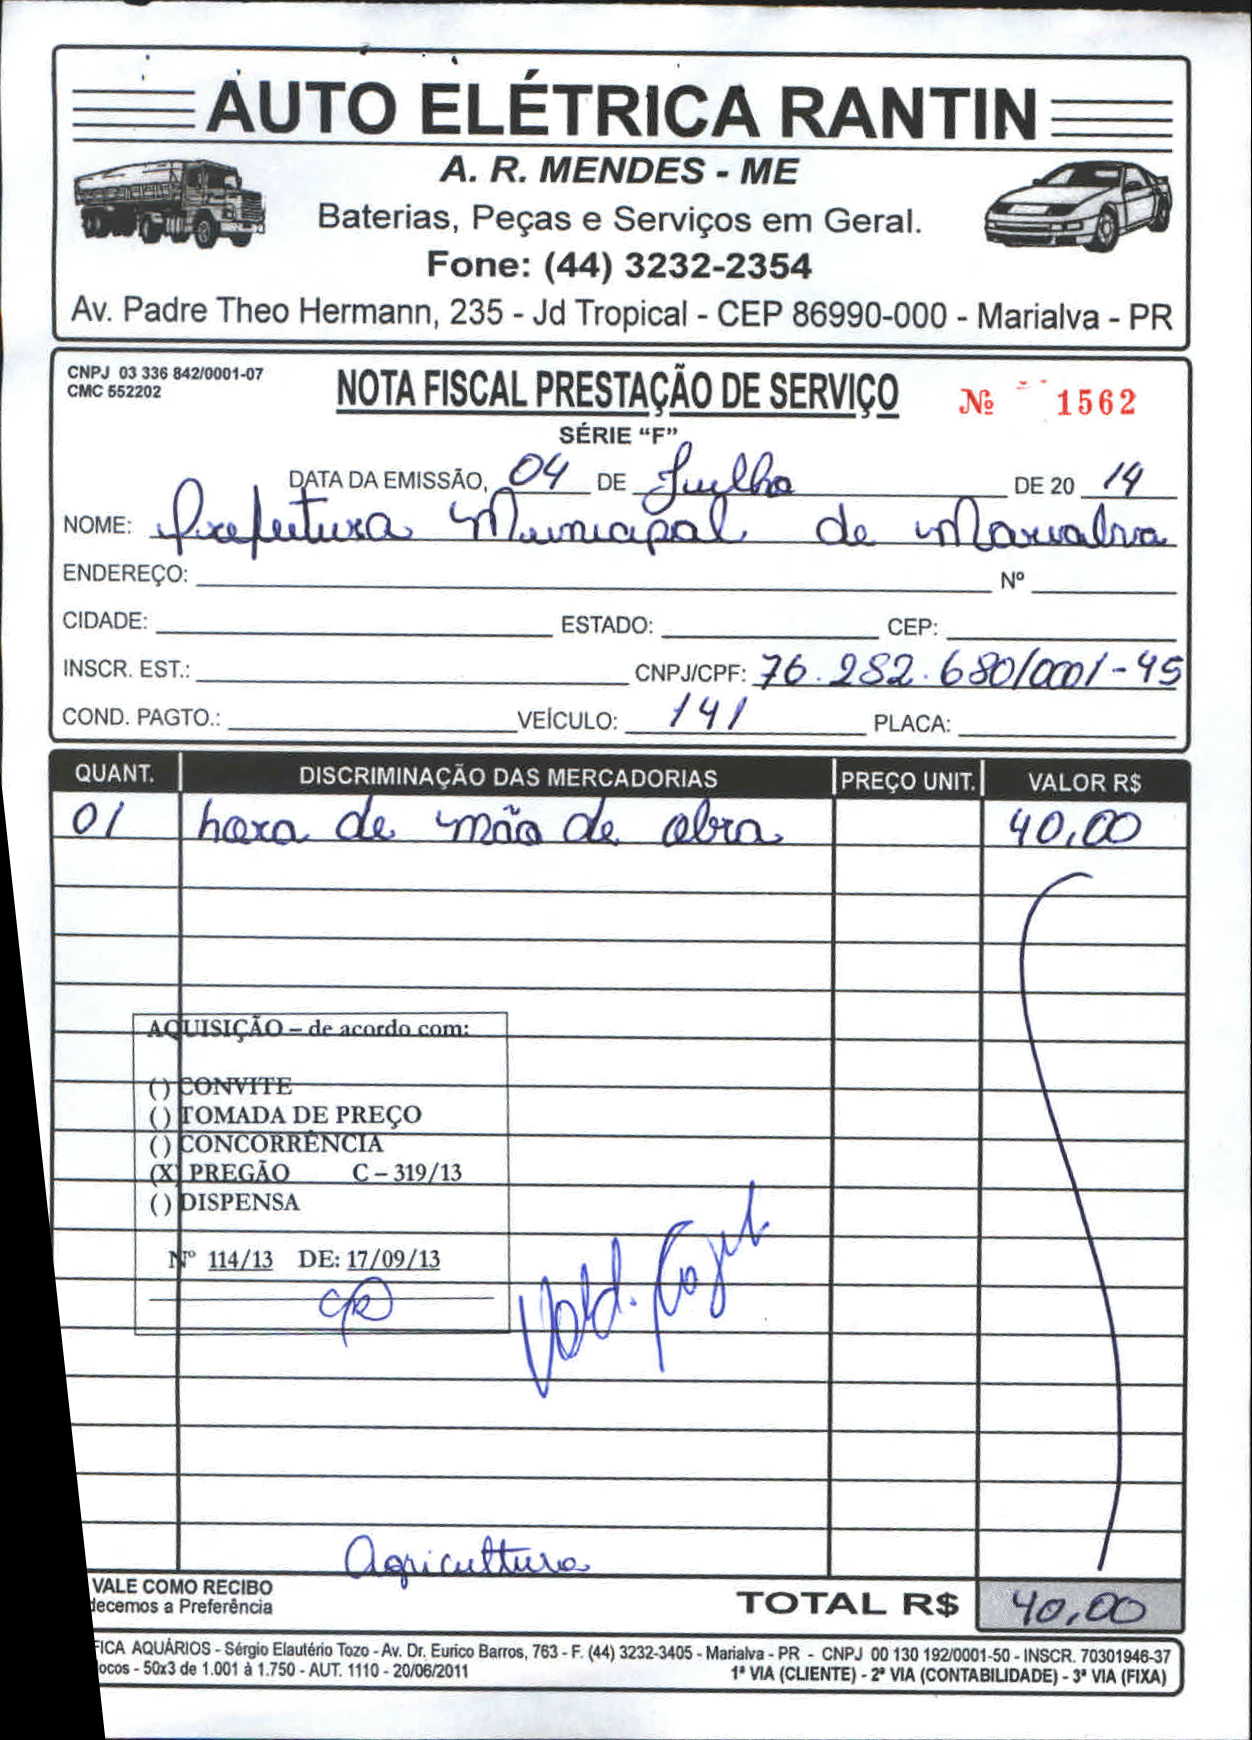 AUTO ELÉTRICA RANTIN
A. R. MENDES - ME
Baterias, Peças e Serviços em Geral.
Fone: (44) 3232-2354
Av. Padre Theo Hermann, 235 - Jd Tropical - CEP 86990-000 - Marialva - PR
CNPJ 03 336 842/0001-07
CMC 552202
NOTA FISCAL PRESTAÇÃO DE SERVIÇO
Nº 1562
SÉRIE “F”
DATA DA EMISSÃO, 04 DE Julho DE 20 14
NOME: Prefeitura Municipal de Marialva
ENDEREÇO: Nº
CIDADE: ESTADO: CEP:
INSCR. EST.: CNPJ/CPF: 76.282.680/0001-45
COND. PAGTO.: VEÍCULO: 141 PLACA:
QUANT. DISCRIMINAÇÃO DAS MERCADORIAS PREÇO UNIT. VALOR R$
01 hora de mão de obra 40,00
AQUISIÇÃO – de acordo com:
( ) CONVITE
( ) TOMADA DE PREÇO
( ) CONCORRÊNCIA
(X) PREGÃO C – 319/13
( ) DISPENSA
Nº 114/13 DE: 17/09/13
Agricultura
VALE COMO RECIBO
decemos a Preferência
TOTAL R$ 40,00
FICA AQUÁRIOS - Sérgio Elautério Tozo - Av. Dr. Eurico Barros, 763 - F. (44) 3232-3405 - Marialva - PR - CNPJ 00 130 192/0001-50 - INSCR. 70301946-37
ocos - 50x3 de 1.001 à 1.750 - AUT. 1110 - 20/06/2011
1ª VIA (CLIENTE) - 2ª VIA (CONTABILIDADE) - 3ª VIA (FIXA)